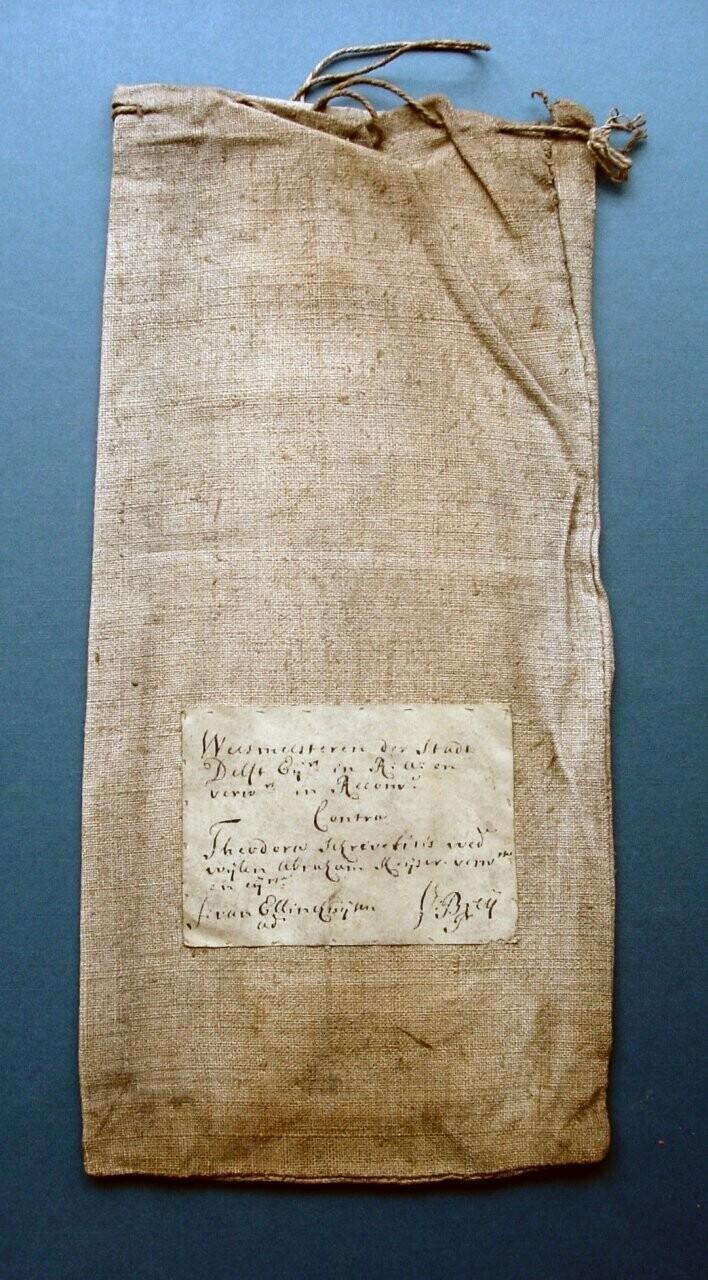 Weesmeesteren der Stadt
Delft Eyrs in R. a: en
verwrs in Reconv:
Contra
Theodora Schrevelius wede
wijlen Abraham Keyser verwrsse
en eyrsse
J: van Ellinckhuysen
adt